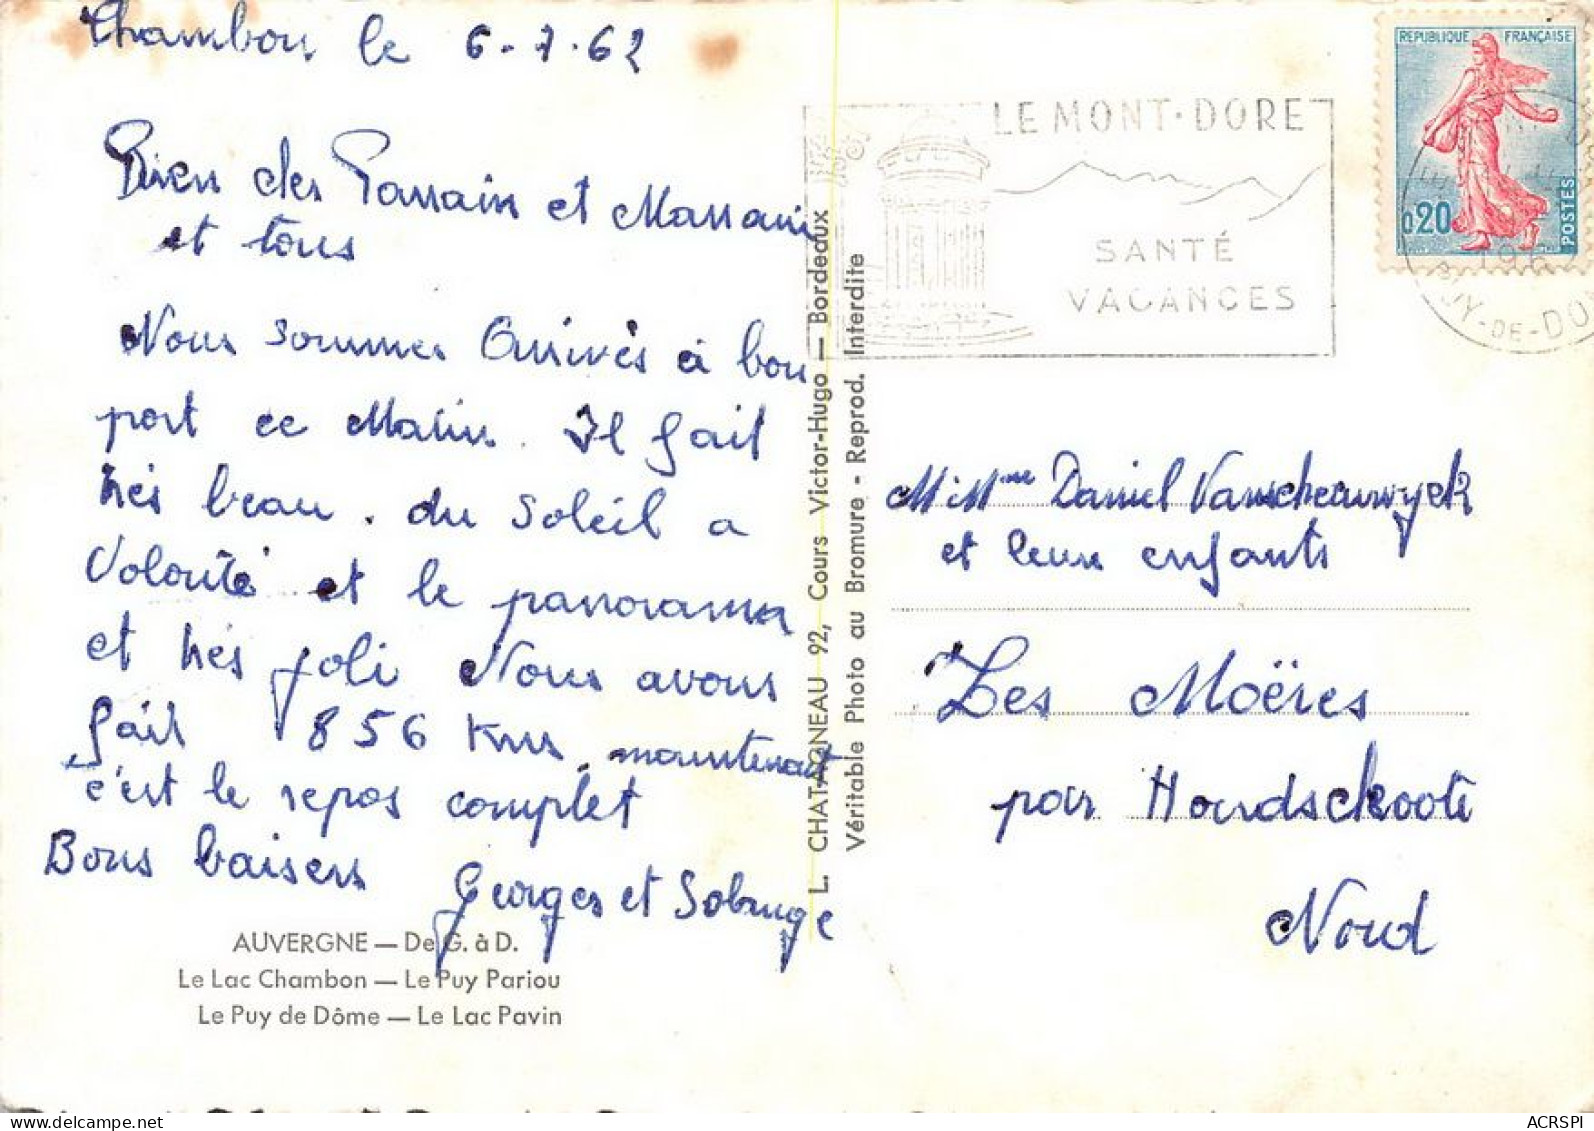 Chambon le 6-7-62
Bien cher Parrain et Marraine
et tous
Nous sommes arrivés à bon
port ce Matin. Il fait
très beau. du Soleil a
Volonté et le panorama
et très joli Nous avons
fait 856 Kms. maintenant
c'est le repos complet
Bons baisers
Georges et Solange
AUVERGNE — De G. à D.
Le Lac Chambon — Le Puy Pariou
Le Puy de Dôme — Le Lac Pavin
L. CHATAGNEAU 92, Cours Victor-Hugo — Bordeaux
Véritable Photo au Bromure - Reprod. Interdite
LE MONT-DORE
SANTÉ
VACANCES
REPUBLIQUE FRANÇAISE
0,20
POSTES
196
PUY-DE-DO
M. Mme Daniel
et leurs enfants
Les Moëres
par Hondschoote
Nord
ACRSPI